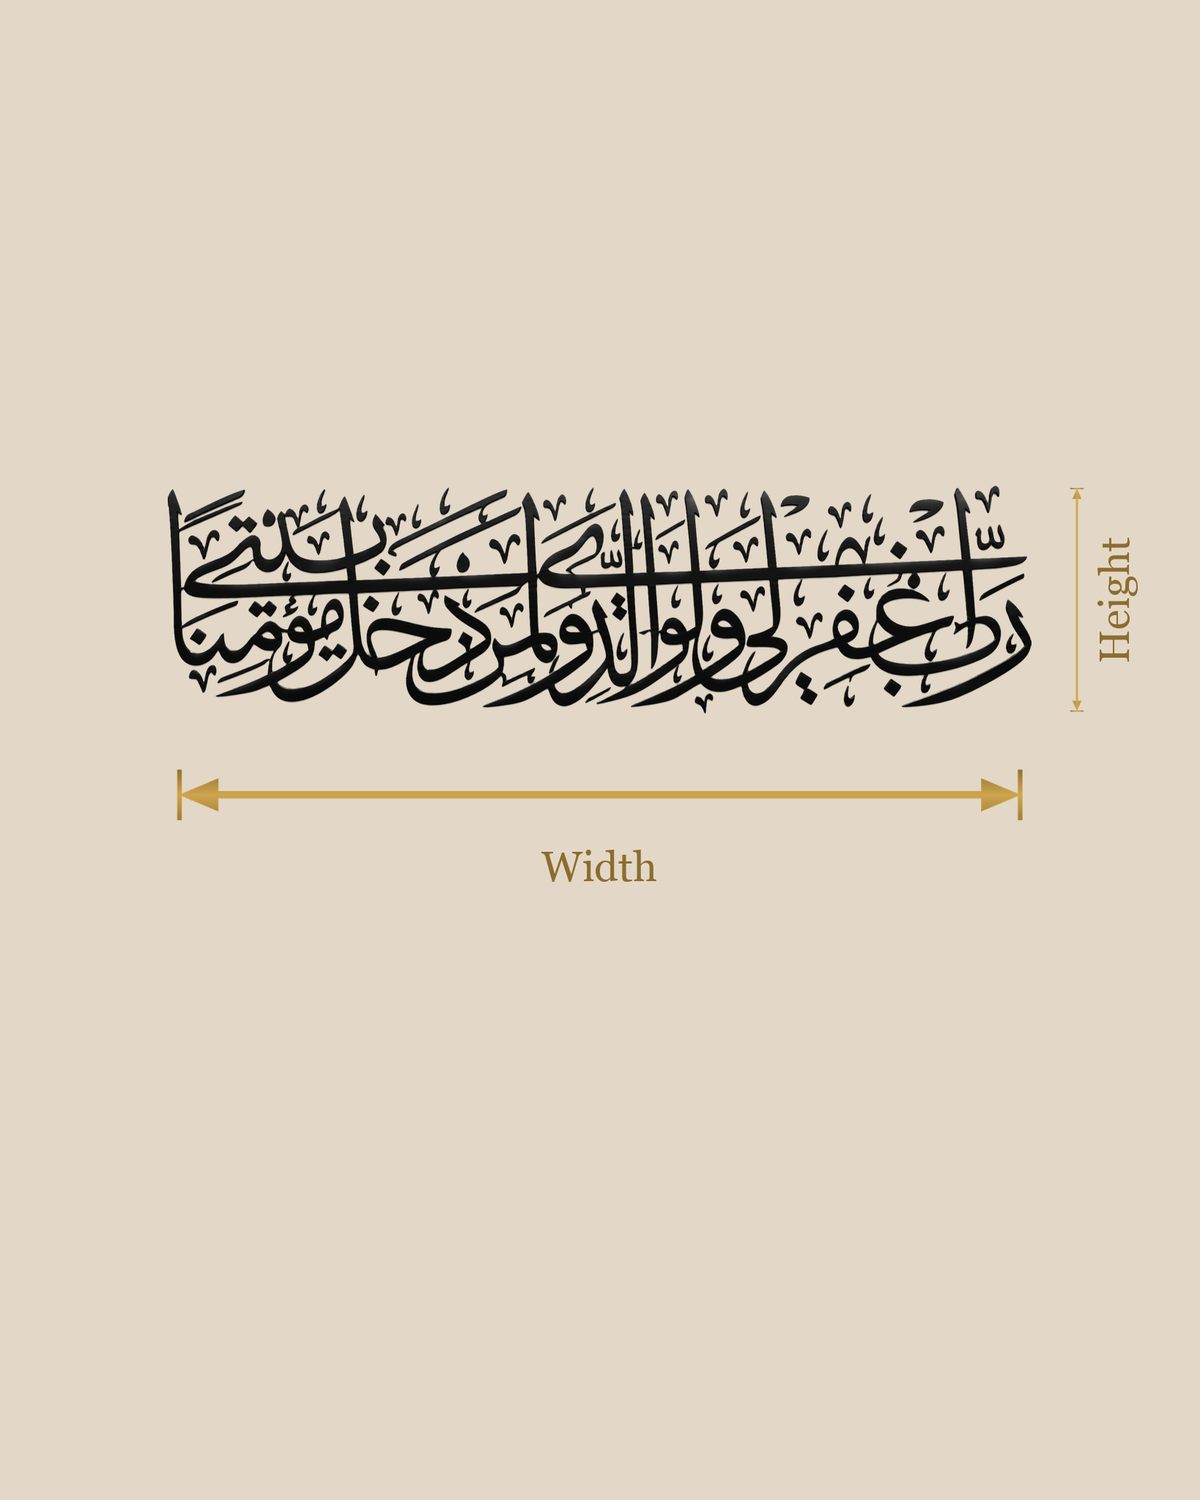 رَبِّ اغْفِرْ لِي وَلِوَالِدَيَّ وَلِمَنْ دَخَلَ بَيْتِيَ مُؤْمِنًا
Height
Width